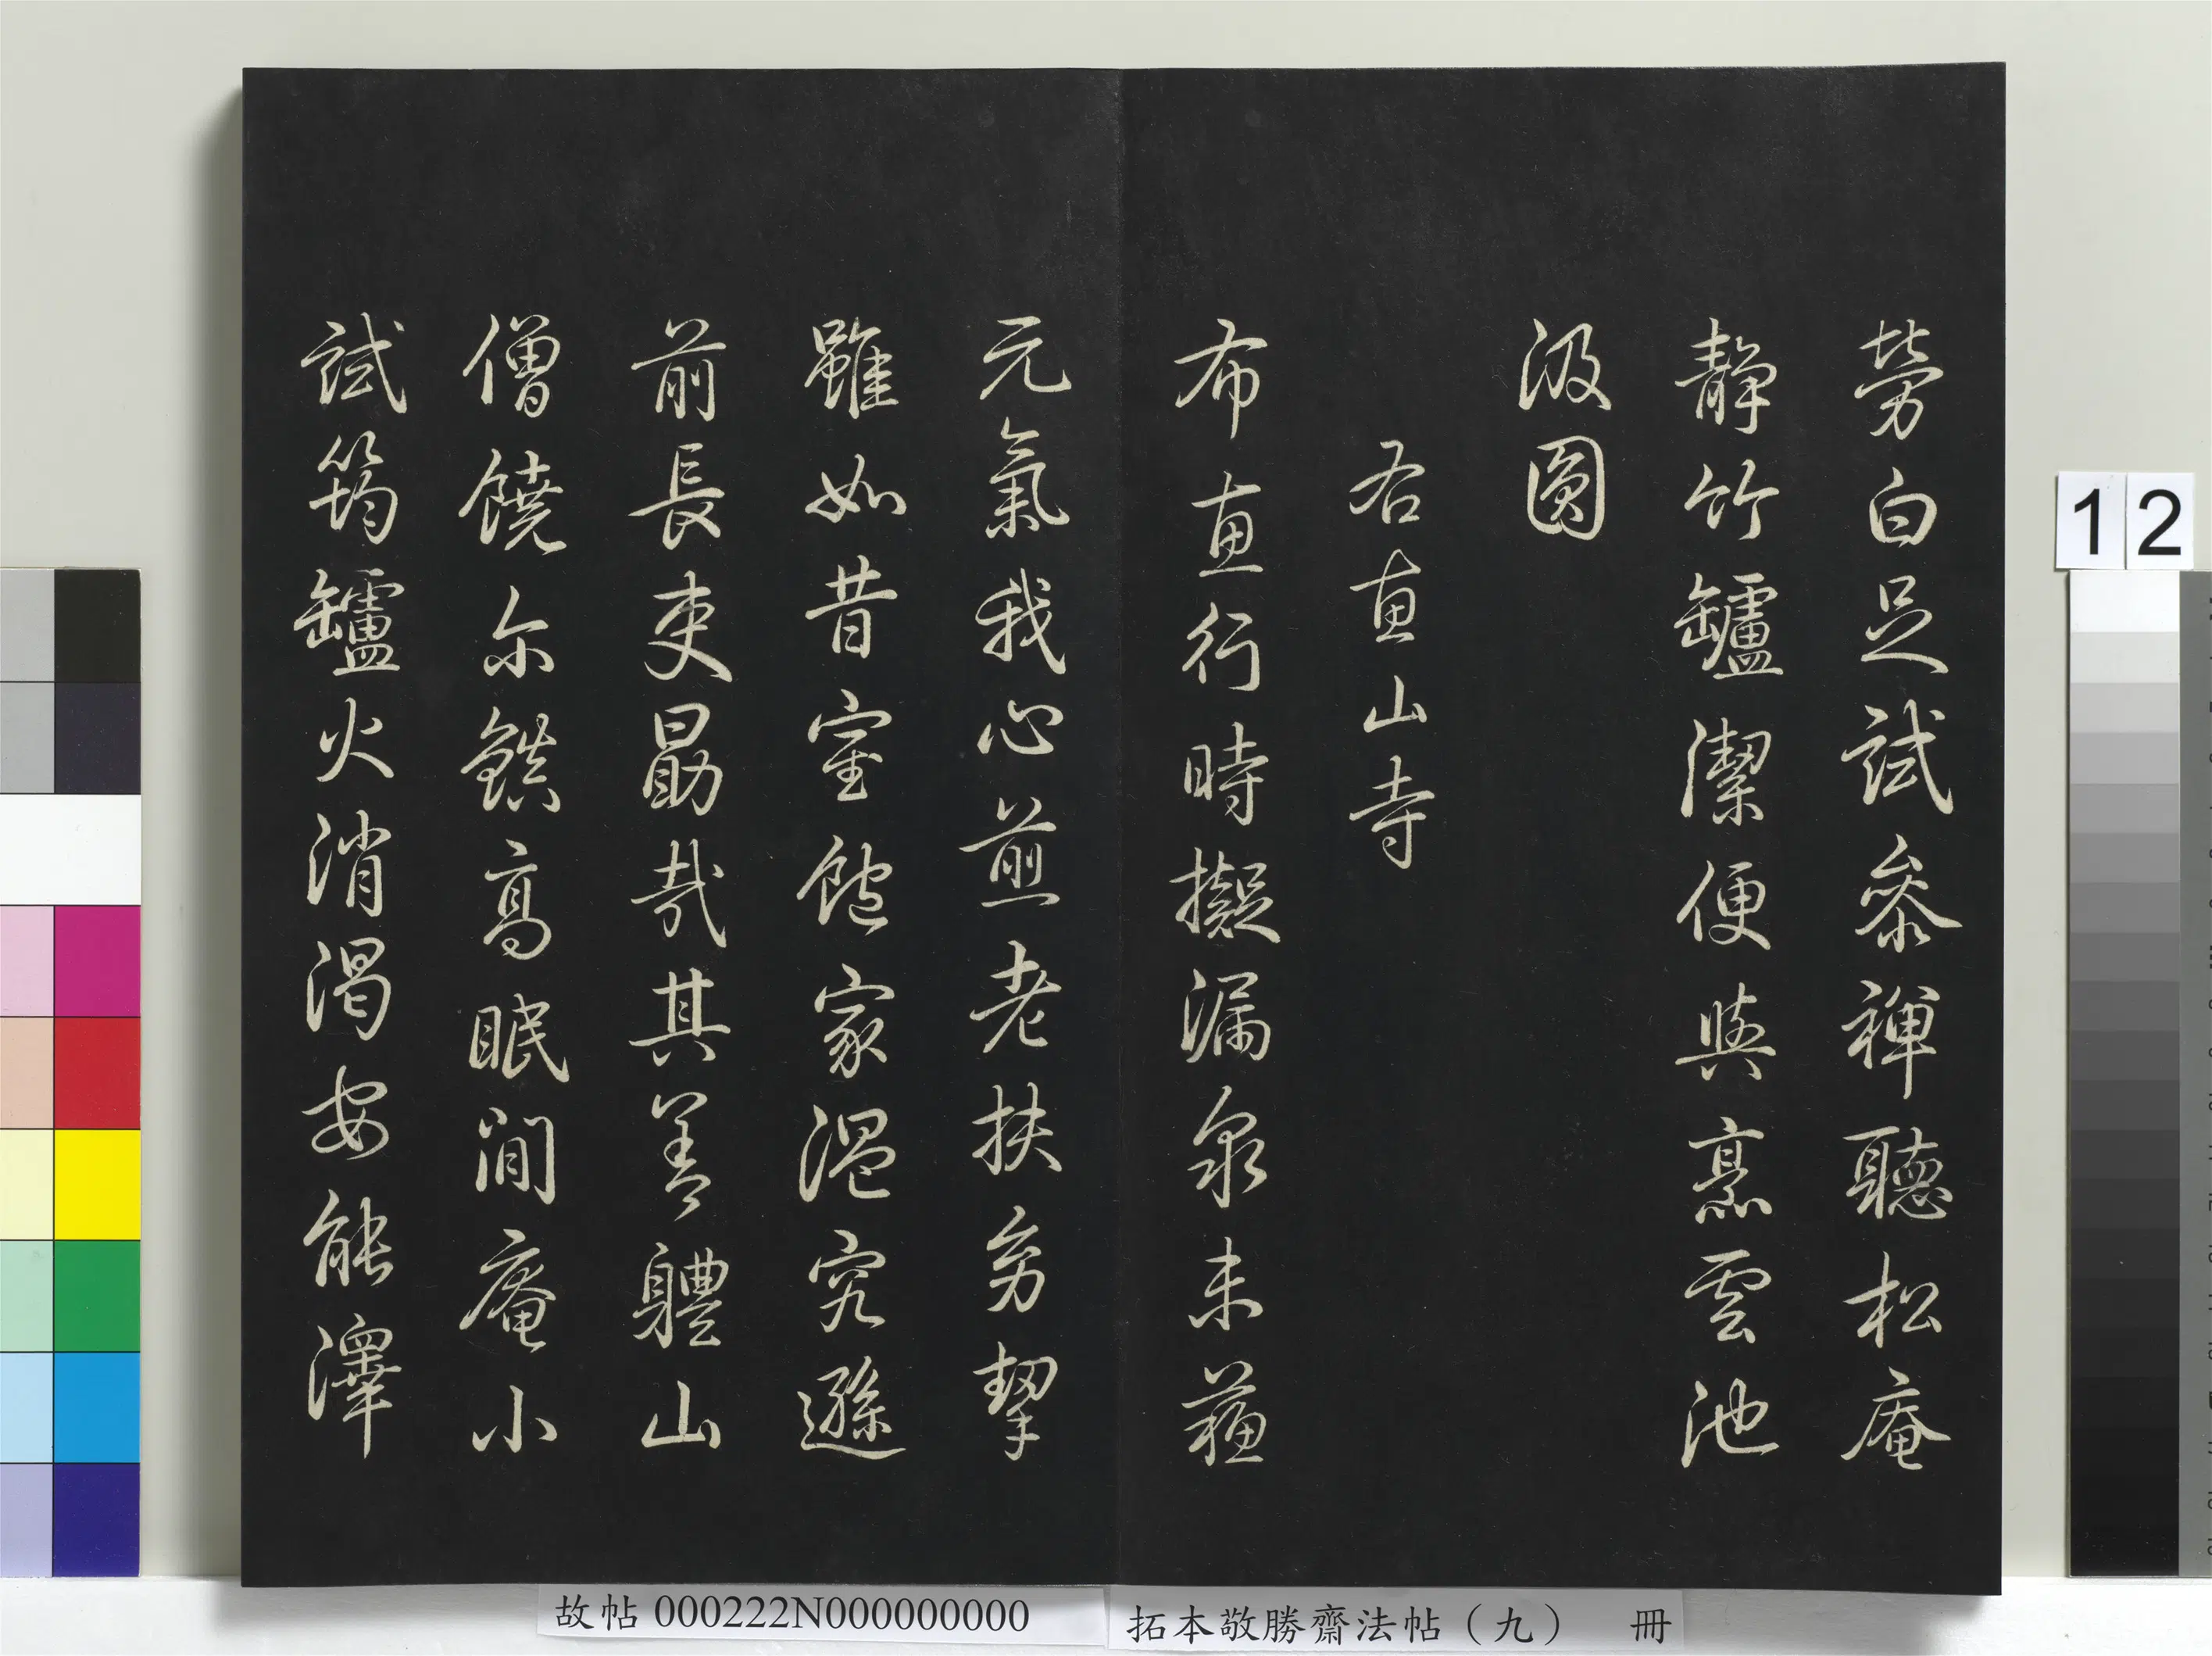 勞白足試參禪聽松庵
靜竹罏潔便與烹雲池
汲圓
右直山寺
布直行時擬漏泉未蘓
元氣我心煎老扶弱挈
雖如昔室飽家溫究遜
前長吏勗哉其善體山
僧饒尔饌高眠閒庵小
試筠罏火消渴安能澤
12
故帖 000222N000000000
拓本敬勝齋法帖（九） 冊